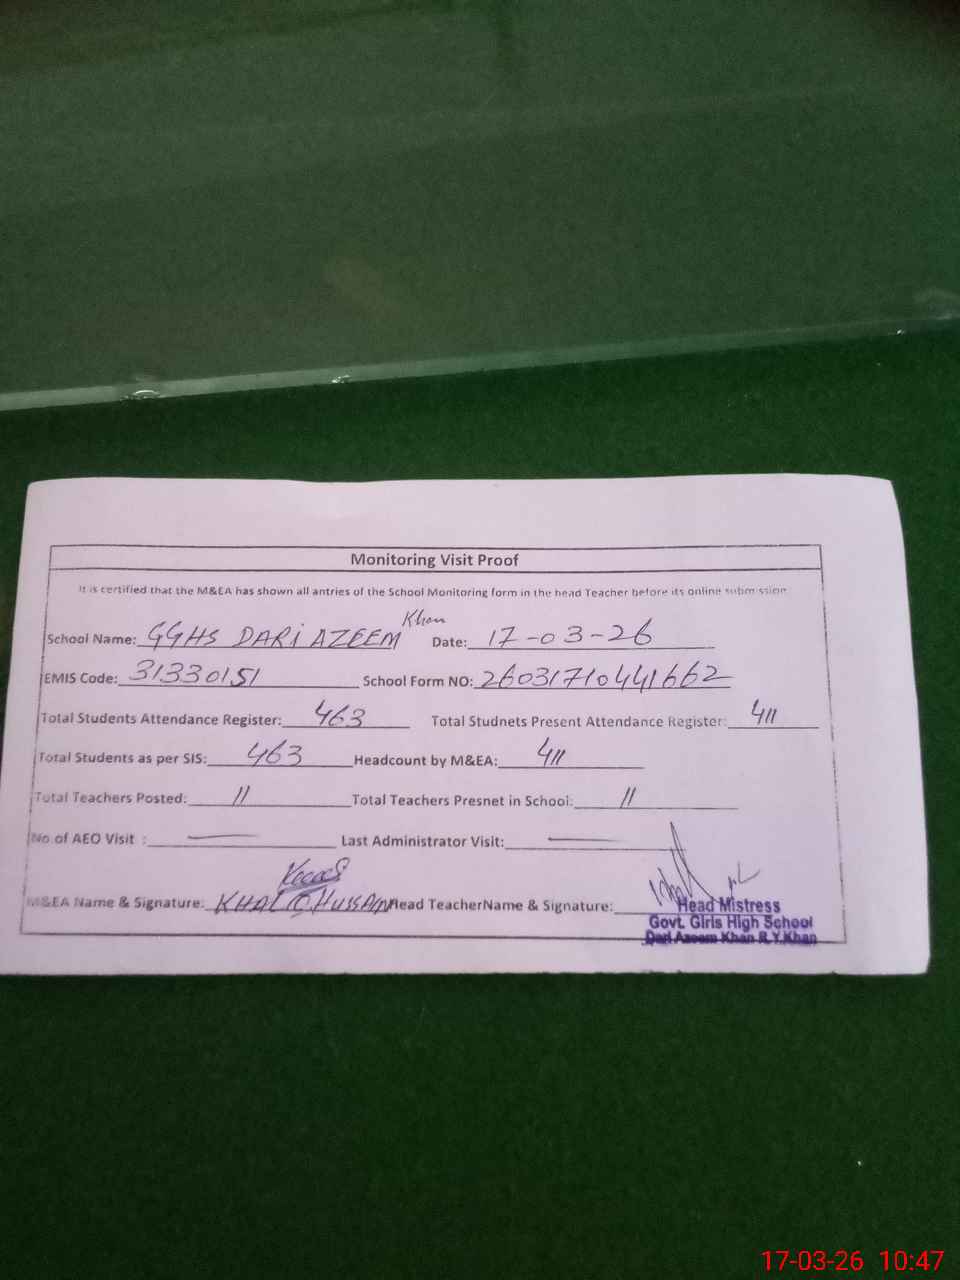 Monitoring Visit Proof
It is certified that the M&EA has shown all antries of the School Monitoring form in the head Teacher before its online submission
School Name: GGHS DARI AZEEM Khan Date: 17-03-26
EMIS Code: 31330151 School Form NO: 26031710441662
Total Students Attendance Register: 463 Total Studnets Present Attendance Register: 411
Total Students as per SIS: 463 Headcount by M&EA: 411
Total Teachers Posted: 11 Total Teachers Presnet in School: 11
No.of AEO Visit : — Last Administrator Visit: —
M&EA Name & Signature: KHALIQ HUSSAIN Head TeacherName & Signature:
Head Mistress
Govt. Girls High School
Dari Azeem Khan R.Y.Khan
17-03-26 10:47